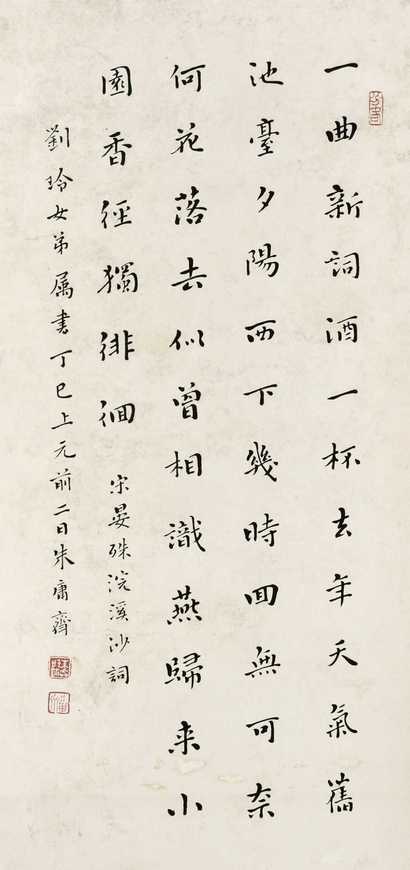 一曲新詞酒一杯去年天氣舊
池臺夕陽西下幾時回無可奈
何花落去似曾相識燕歸来小
園香徑獨徘徊 宋晏殊浣溪沙詞
劉玲女弟属書丁巳上元前二日朱庸齋